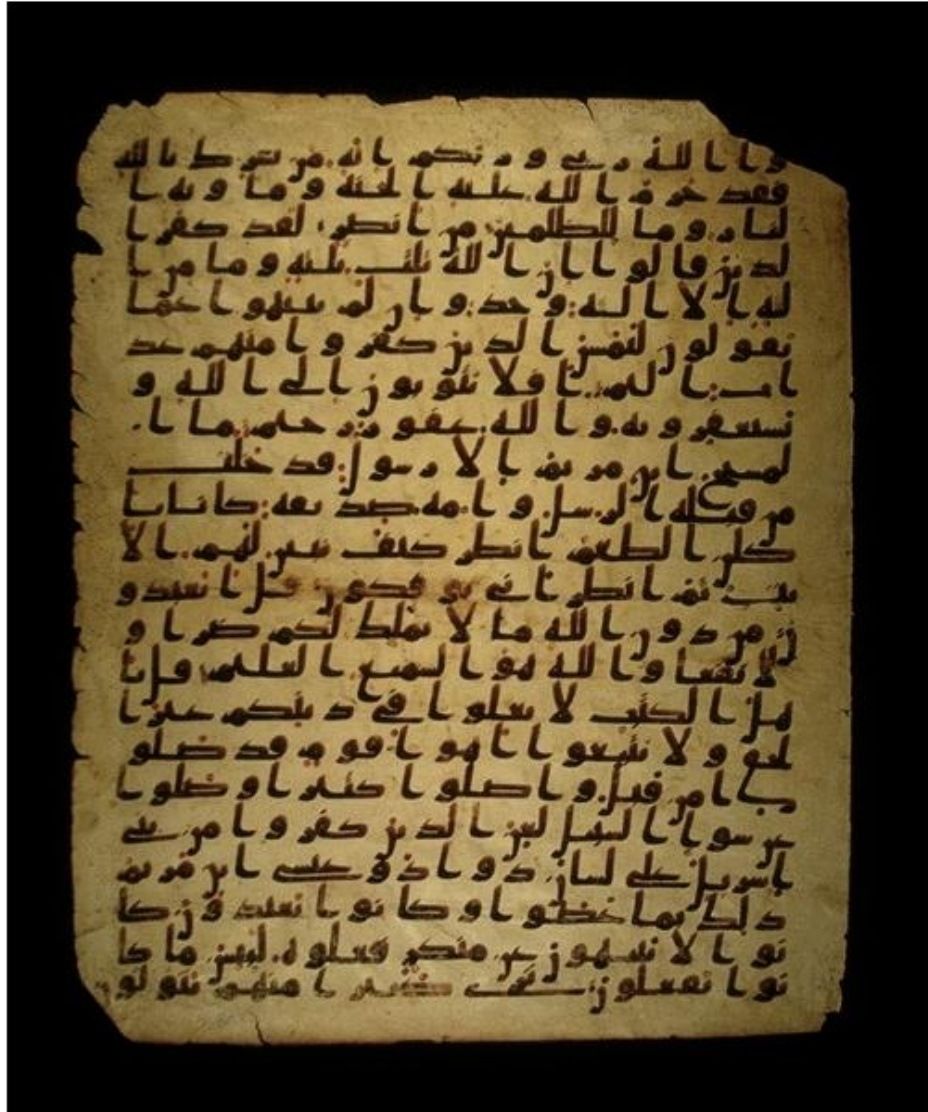 وا الله ربي وربكم انه من يشرك بالله
فقد حرم الله عليه الجنة وماويه ا
لنار وما للظلمين من انصر لقد كفر ا
لذين قالوا ان الله ثلث ثلثة وما من ا
له الا اله وحد وان لم ينتهوا عما
يقولون ليمسن الذين كفروا منهم عذ
اب اليم افلا يتوبون الى الله و
يستغفرونه والله غفور رحيم ما ا
لمسيح ابن مريم الا رسول قد خلت
من قبله الرسل وامه صديقة كانا يا
كلن الطعم انظر كيف نبين لهم الا
يت ثم انظر انى يوفكون قل اتعبدو
ن من دون الله ما لا يملك لكم ضرا و
لا نفعا والله هو السميع العليم قل يا
هل الكتب لا تغلوا في دينكم غير ا
لحق ولا تتبعوا اهوا قوم قد ضلو
ا من قبل واضلوا كثيرا وضلوا
عن سوا السبيل لعن الذين كفروا من بني
اسريل على لسان داود وعيسى ابن مريم
ذلك بما عصوا وكانوا يعتدون كا
نوا لا يتنهون عن منكر فعلوه لبيس ما كا
نوا يفعلون ترى كثيرا منهم يتولو